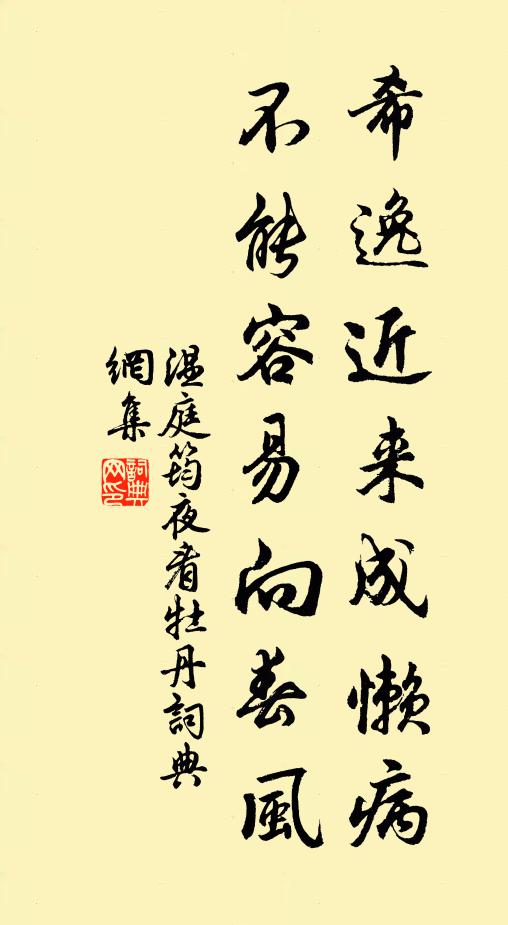 希逸近来成懒病
不能容易向春風
温庭筠夜看牡丹詞典
網集
詞典
网印